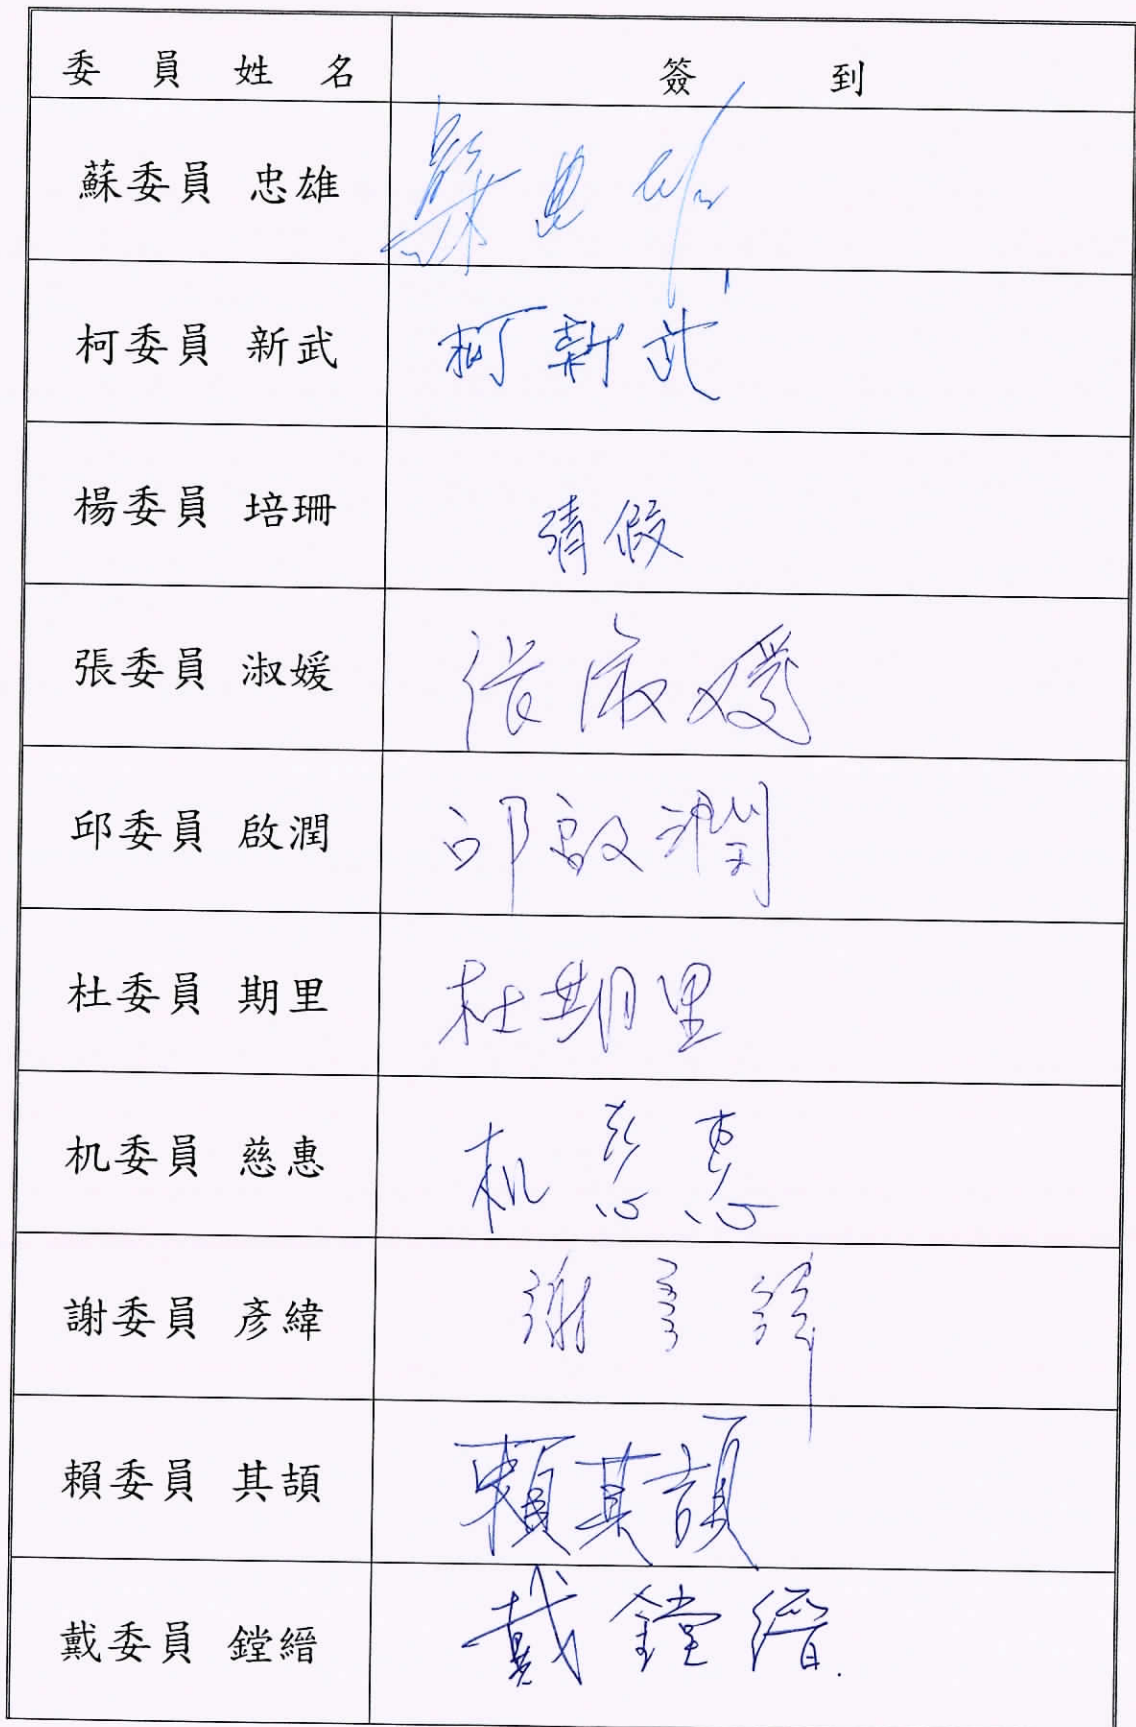 委員姓名 簽到
蘇委員 忠雄 蘇忠雄
柯委員 新武 柯新武
楊委員 培珊 請假
張委員 淑媛 張淑媛
邱委員 啟潤 邱啟潤
杜委員 期里 杜期里
机委員 慈惠 机慈惠
謝委員 彥緯 謝彥緯
賴委員 其頡 賴其頡
戴委員 鏜縉 戴鏜縉.